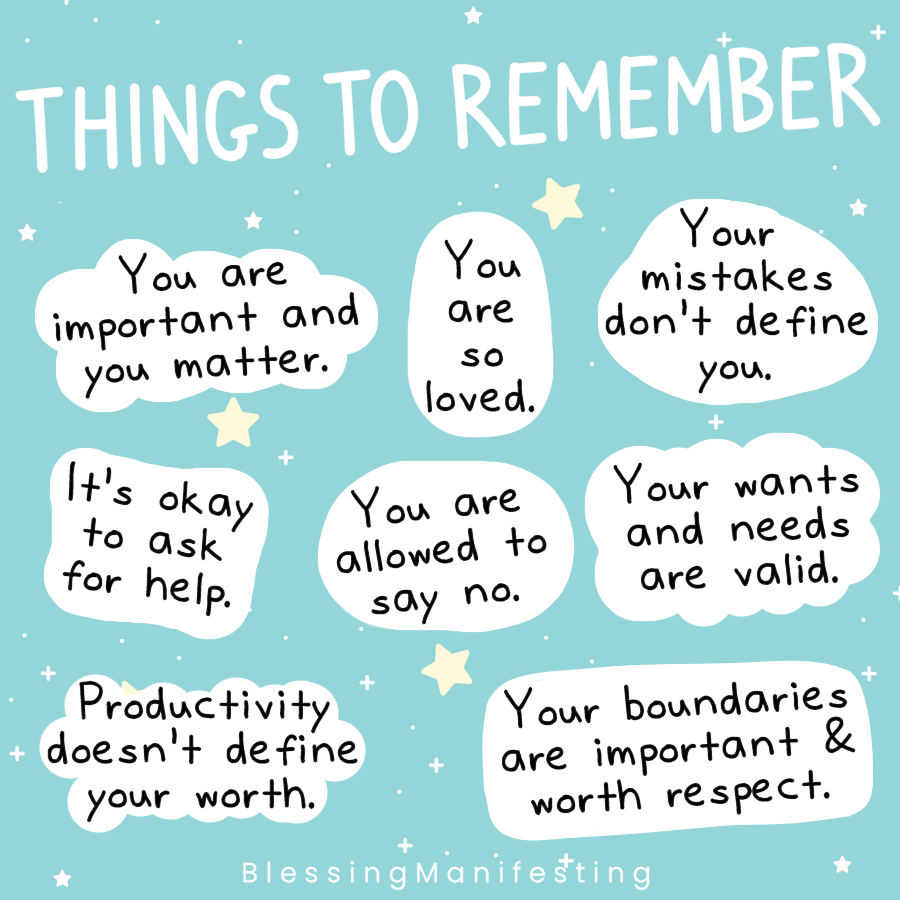 THINGS TO REMEMBER
You are
important and
you matter.
You
are
so
loved.
Your
mistakes
don't define
you.
It's okay
to ask
for help.
You are
allowed to
say no.
Your wants
and needs
are valid.
Productivity
doesn't define
your worth.
Your boundaries
are important &
worth respect.
BlessingManifesting